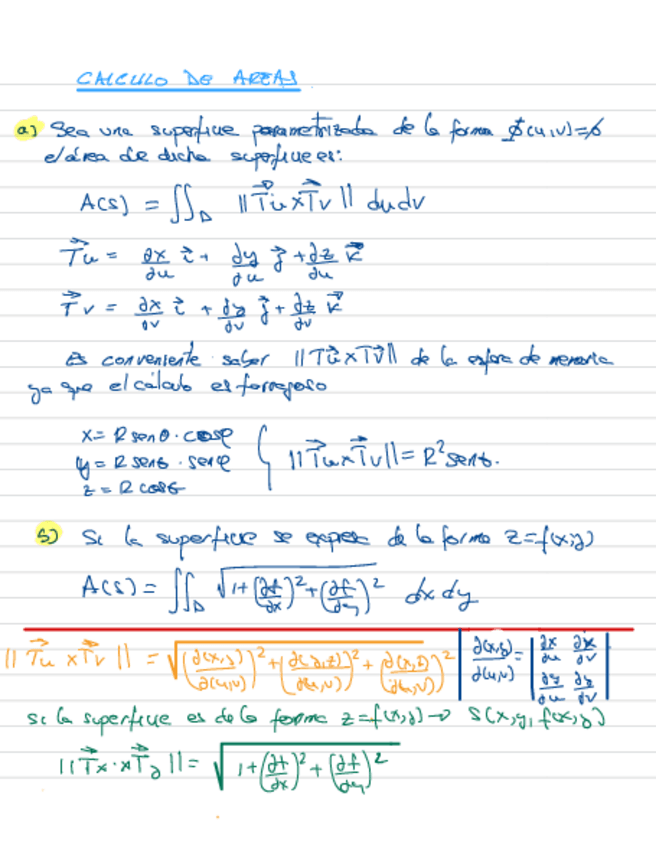 CALCULO DE AREAS
a) Sea una superficie parametrizada de la forma ϕ(u,v)=
el área de dicha superficie es:
A(s) = ∬_D ||T⃗u x T⃗v|| du dv
T⃗u = ∂x/∂u i⃗ + ∂y/∂u j⃗ + ∂z/∂u k⃗
T⃗v = ∂x/∂v i⃗ + ∂y/∂v j⃗ + ∂z/∂v k⃗
Es conveniente saber ||T⃗u x T⃗v|| de la esfera de memoria
ya que el cálculo es farragoso
x = R senθ · cosφ
y = R senθ · senφ { ||T⃗u x T⃗v|| = R² senθ.
z = R cosθ
b) Si la superficie se expresa de la forma z = f(x,y)
A(s) = ∬_D √(1+(∂f/∂x)²+(∂f/∂y)²) dx dy
||T⃗u x T⃗v|| = √((∂(x,y)/∂(u,v))² + (∂(y,z)/∂(u,v))² + (∂(x,z)/∂(u,v))²) | ∂(x,y)/∂(u,v) = |∂x/∂u ∂x/∂v ; ∂y/∂u ∂y/∂v|
si la superficie es de la forma z = f(x,y) → S(x,y,f(x,y))
||T⃗x · x T⃗y|| = √(1+(∂f/∂x)²+(∂f/∂y)²)